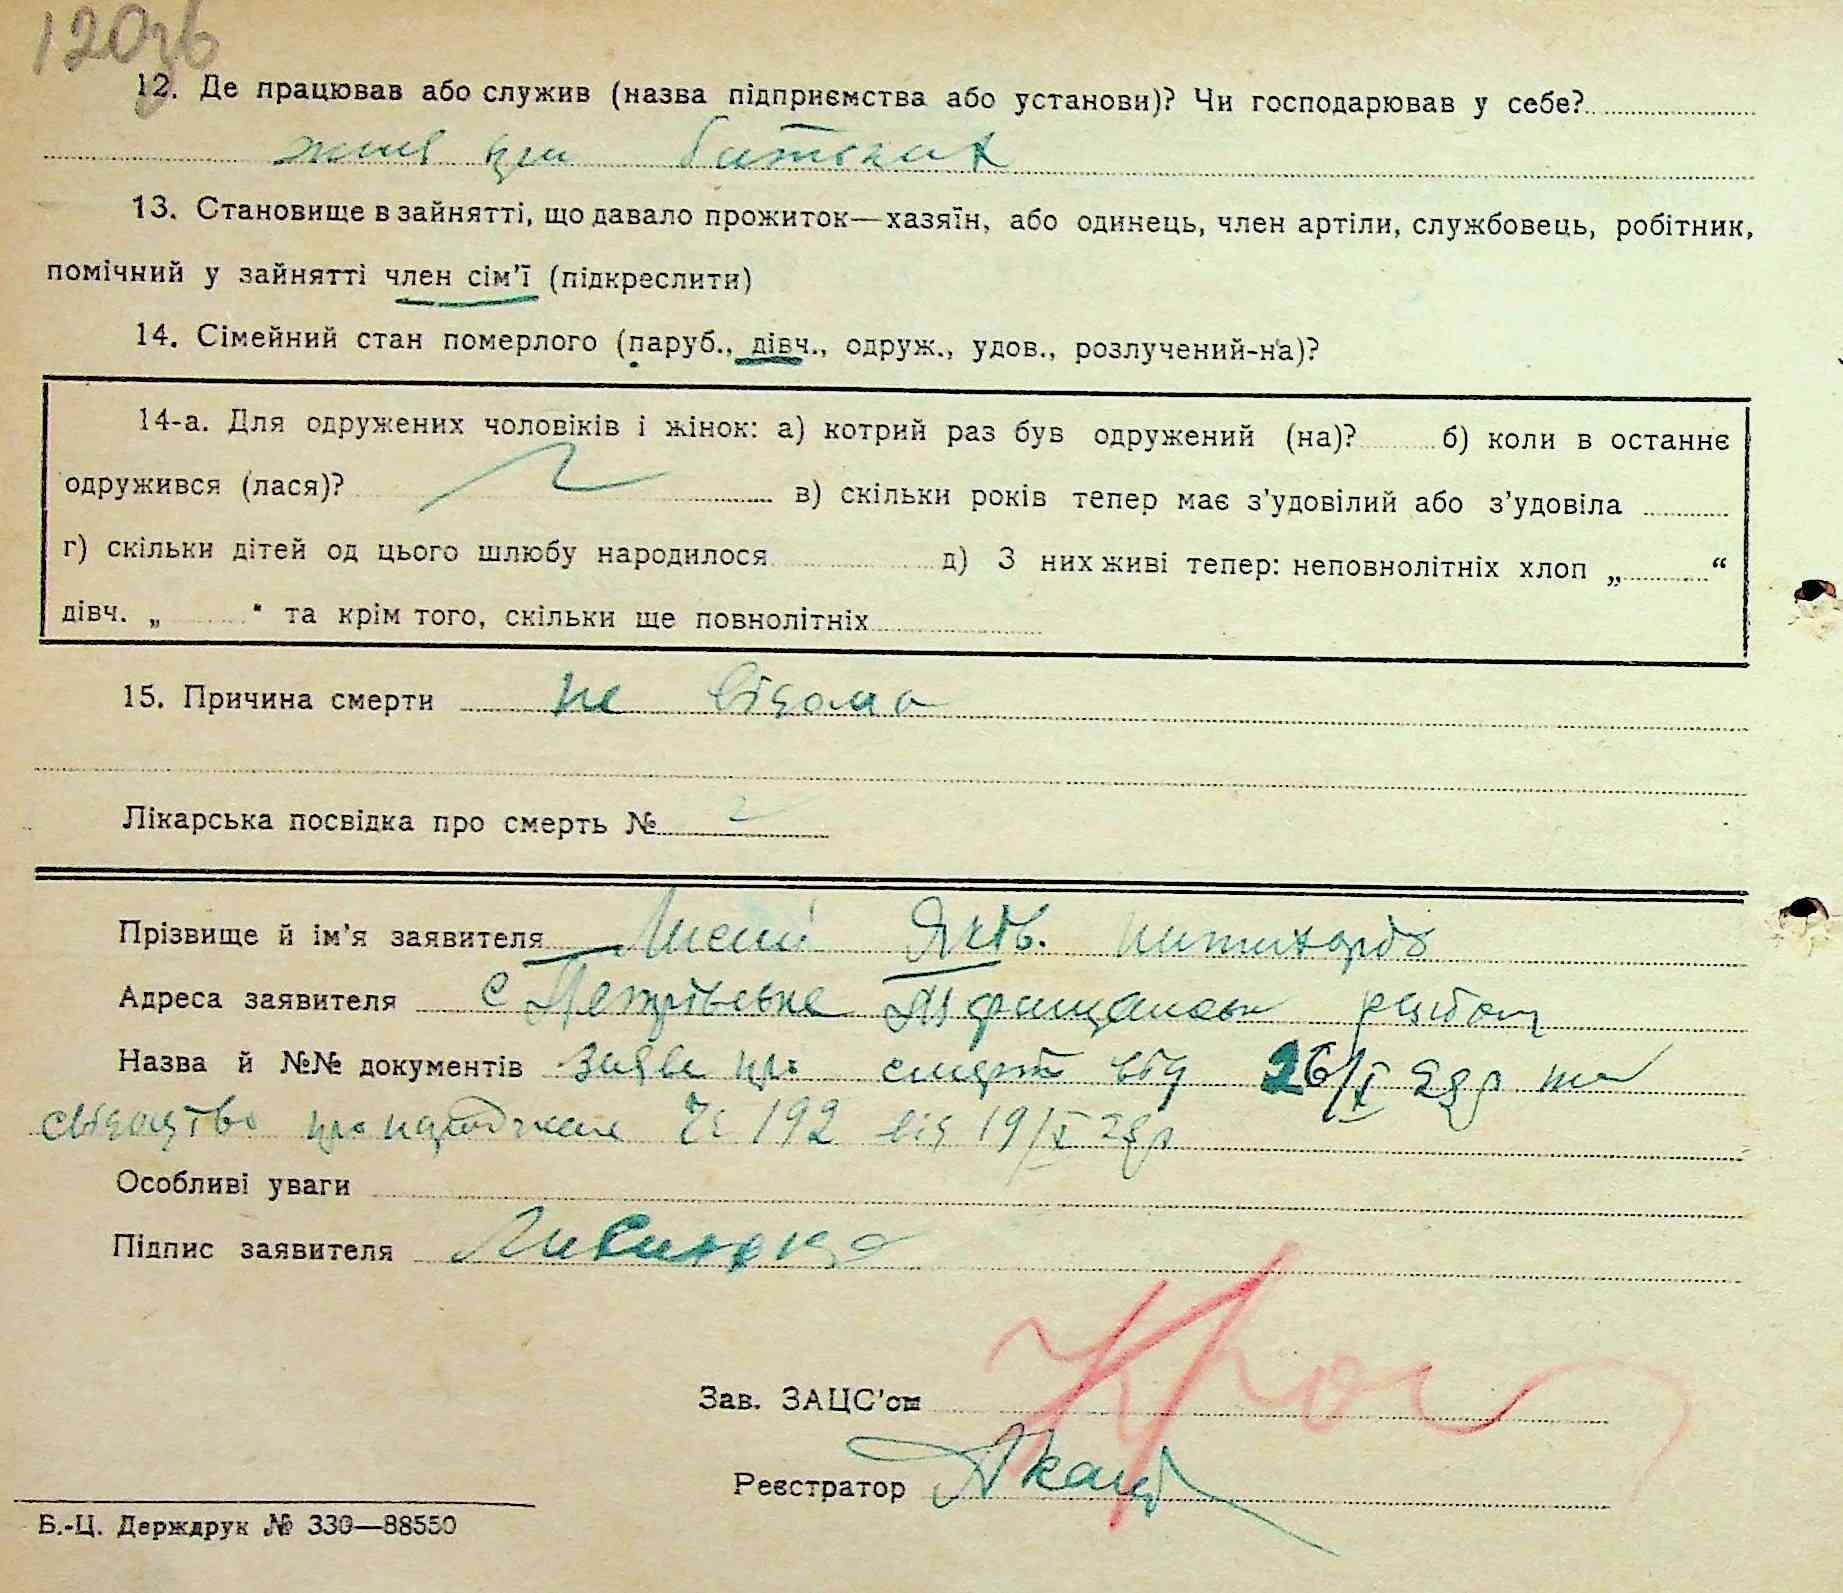 120зв
12. Де працював або служив (назва підприємства або установи)? Чи господарював у себе?
жив при батьках
13. Становище в зайнятті, що давало прожиток—хазяїн, або одинець, член артіли, службовець, робітник,
помічний у зайнятті член сім'ї (підкреслити)
14. Сімейний стан померлого (паруб., дівч., одруж., удов., розлучений-на)?
14-а. Для одружених чоловіків і жінок: а) котрий раз був одружений (на)? б) коли в останнє
одружився (лася)? в) скільки років тепер має з'удовілий або з'удовіла
г) скільки дітей од цього шлюбу народилося д) З них живі тепер: неповнолітніх хлоп „ “
дівч. „ “ та крім того, скільки ще повнолітніх
15. Причина смерти не відома
Лікарська посвідка про смерть №
Прізвище й ім'я заявителя
Адреса заявителя с Петрівське район
Назва й №№ документів заява про смерть від 26/X 28р та
свідоцтво про народження № 192 від 19/X 28р
Особливі уваги
Підпис заявителя
Зав. ЗАЦС'ом
Реєстратор
Б.-Ц. Держдрук № 330—88550